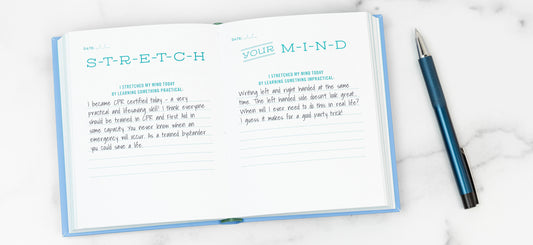 DATE:
S-T-R-E-T-C-H
I STRETCHED MY MIND TODAY
BY LEARNING SOMETHING PRACTICAL.
I became CPR certified today - a very
practical and lifesaving skill! I think everyone
should be trained in CPR and First Aid in
some capacity. You never know when an
emergency will occur. As a trained bystander
you could save a life.
DATE:
YOUR M-I-N-D
I STRETCHED MY MIND TODAY
BY LEARNING SOMETHING IMPRACTICAL.
Writing left and right handed at the same
time. The left handed side doesn't look great.
When will I ever need to do this in real life?
I guess it makes for a good party trick!